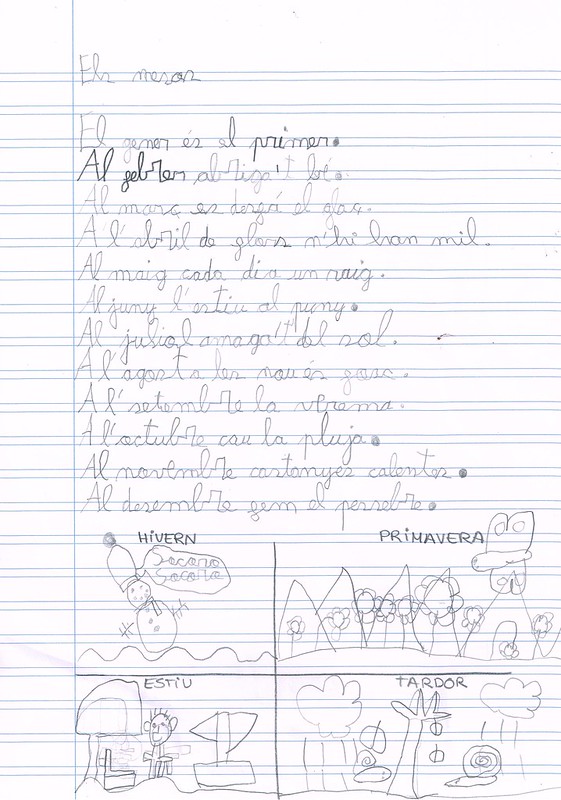 Els mesos
El gener és el primer.
Al gebrer abriga't bé.
Al març es dergà el glaç.
A l'abril de glors n'hi han mil.
Al maig cada dia un raig.
Al juny l'estiu al puny.
Al juliol amaga't del sol.
A l'agost a les nou és gosc.
A l'setembre la verema.
A l'octubre cau la pluja.
Al novembre castanyes calentes.
Al desembre gem el pessebre.
HIVERN
PRIMAVERA
Socoro
Socoro
ESTIU
TARDOR